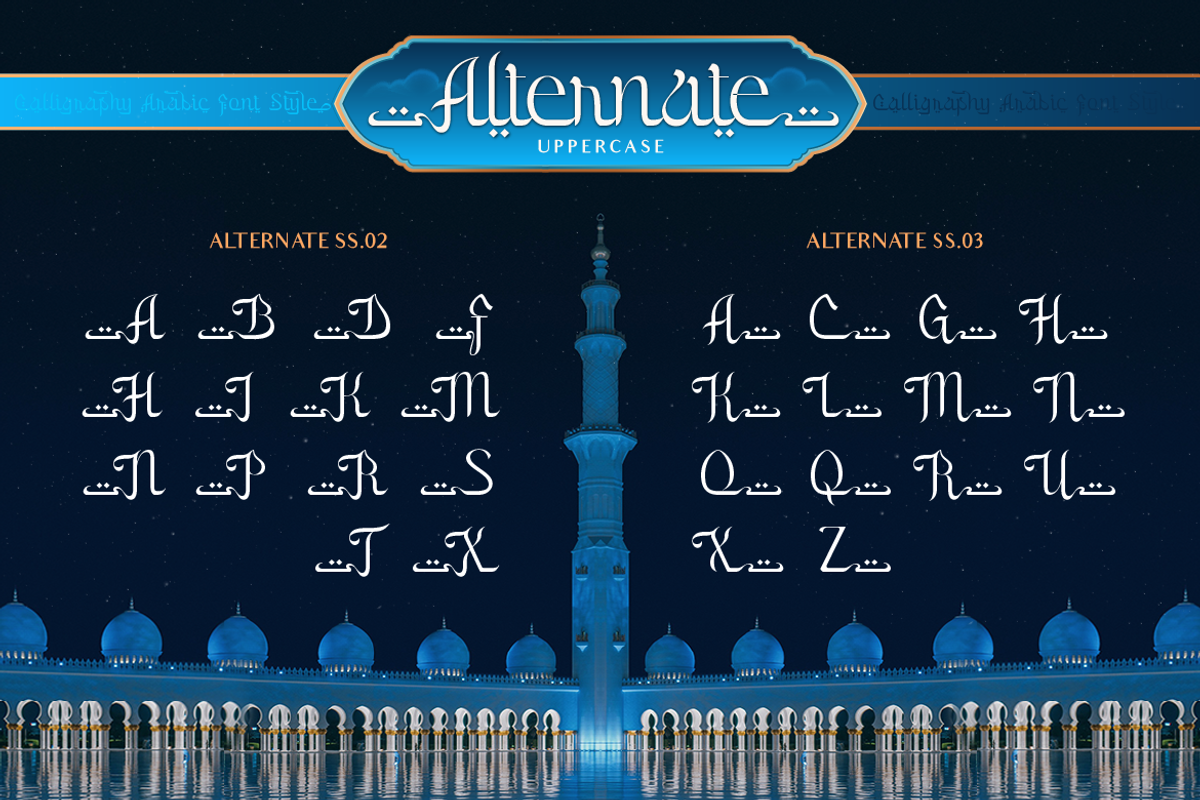 Alternate
UPPERCASE
Calligraphy Arabic Font Style
Calligraphy Arabic Font
ALTERNATE SS.02
A B D F
H I K M
N P R S
T X
ALTERNATE SS.03
A C G H
K L M N
O Q R U
X Z